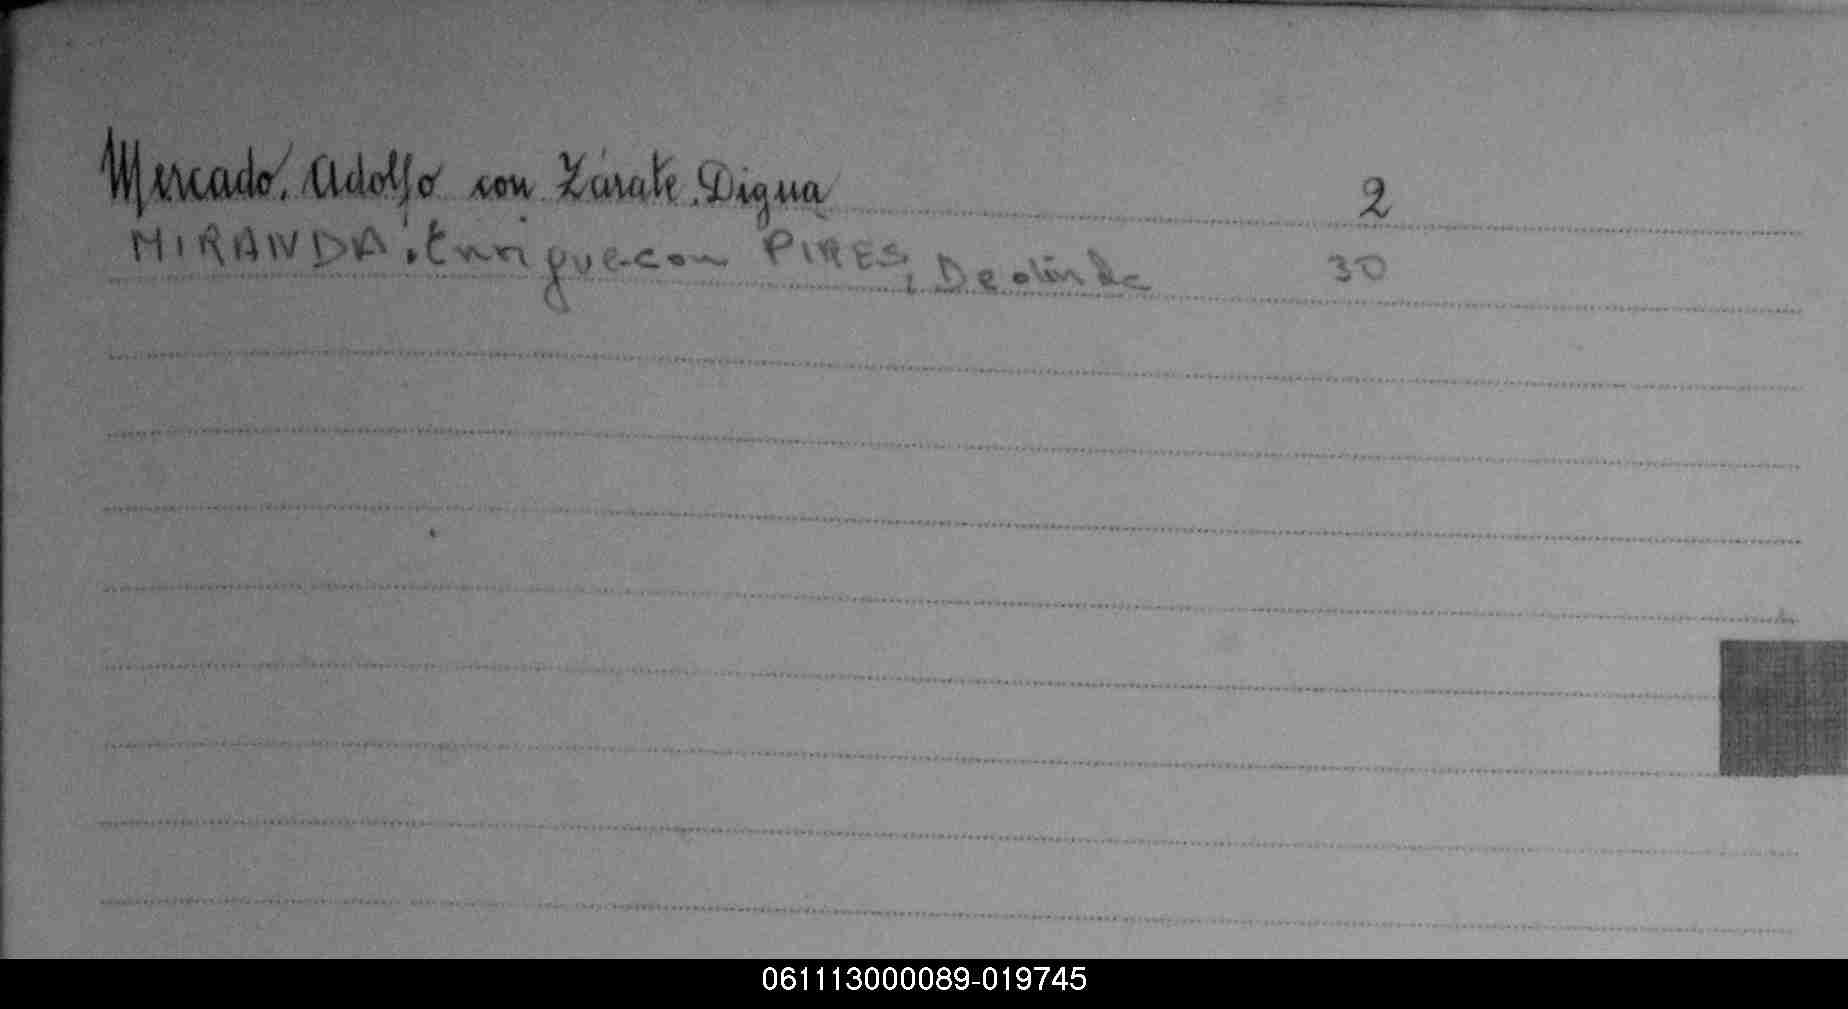 Mercado, Adolfo con Zárate, Digna 2
MIRANDA, Enrique con PIRES, Deolinda 30
061113000089-019745